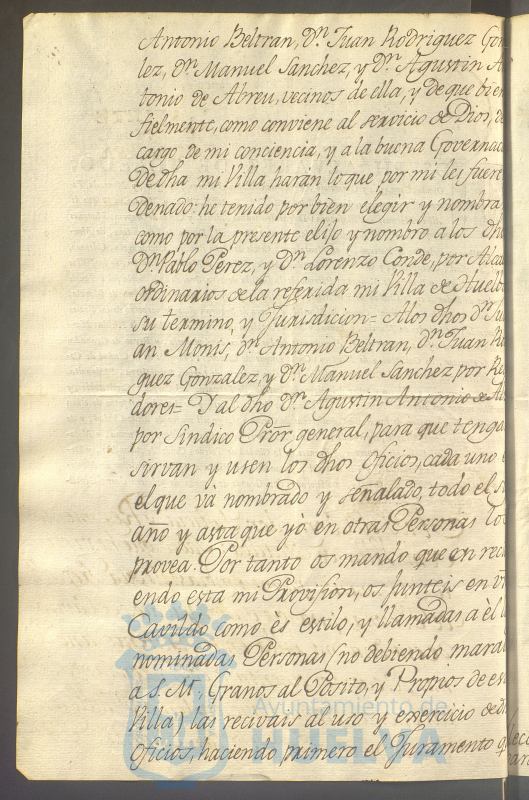 Antonio Beltran, Dⁿ. Juan Rodriguez Gon
lez, Dⁿ. Manuel Sanchez, y Dⁿ. Agustin A
tonio de Abreu, vecinos de ella, y de que bien
fielmente, como conviene al servicio de Dios, de
cargo de mi conciencia, y a la buena Governac
De dha mi Villa harán lo que por mi les fuere
denado: he tenido por bien elegir y nombra
como por la presente elijo y nombro a los dho
Dⁿ. Pablo Perez, y Dⁿ. Lorenzo Conde, por Alca
ordinarios de la referida mi Villa de Huelv
su termino, y Jurisdicion = A los dhos Dⁿ. Ju
an Monis, Dⁿ. Antonio Beltran, Dⁿ. Juan Ro
guez Gonzalez, y Dⁿ. Manuel Sanchez por Re
dores = Y al dho Dⁿ. Agustin Antonio de Ab
por Sindico Prōr general, para que tenga
sirvan y usen los dhos Oficios, cada uno
el que vá nombrado y señalado, todo el
año y asta que yó en otras Personas lo
provea. Por tanto os mando que en reci
endo esta mi Provision, os junteis en vr̄o
Cavildo como ès estilo, y llamadas a èl
nominadas Personas (no debiendo marav
a S. M., Granos al Posito, y Propios de es
Villa) las recivais al uso y exercicio de d
Oficios, haciendo primero el Juramento q
Ayuntamiento de
HUELVA